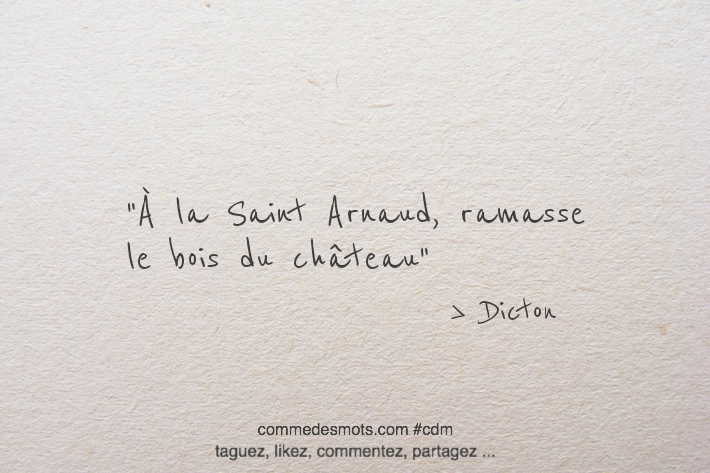 "À la Saint Arnaud, ramasse
le bois du château"
> Dicton
commedesmots.com #cdm
taguez, likez, commentez, partagez ...